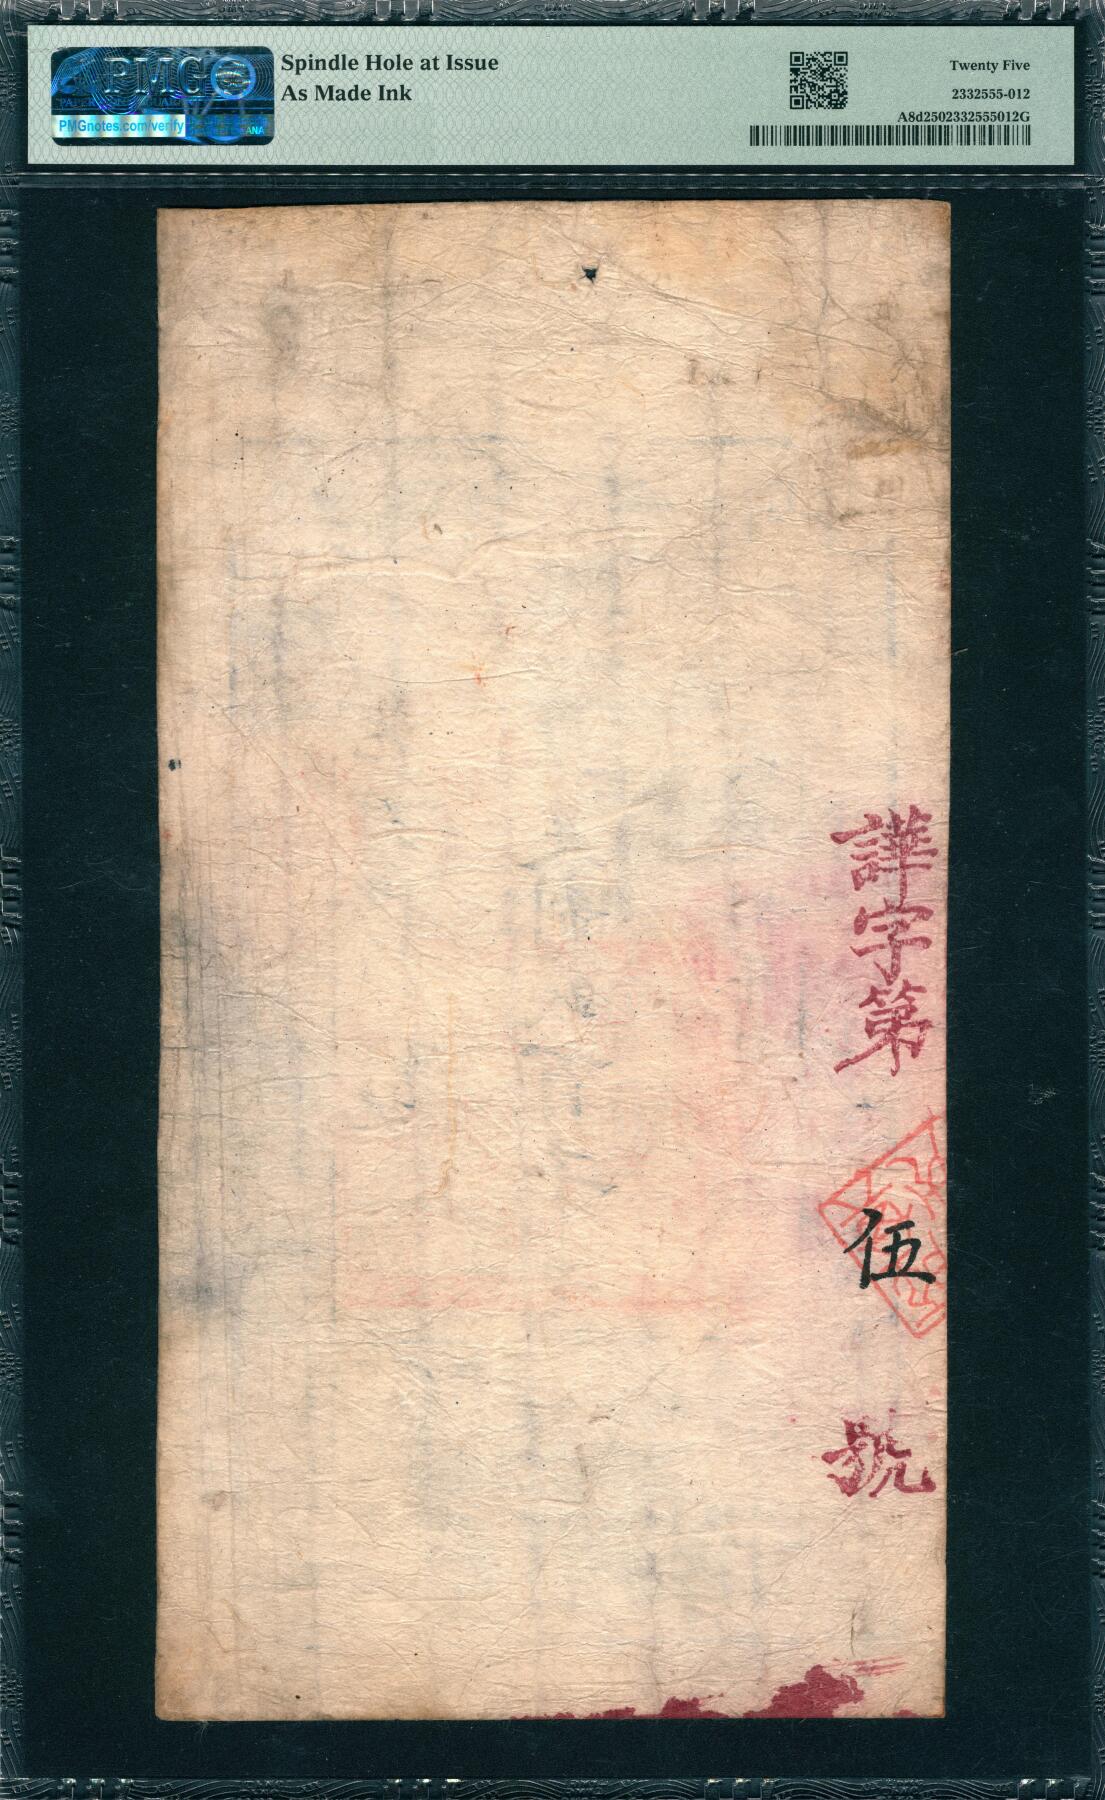 PMG
PAPER MONEY GUARANTY
PMGnotes.com/verify
Spindle Hole at Issue
As Made Ink
Twenty Five
2332555-012
A8d2502332555012G
譁字第
伍
號